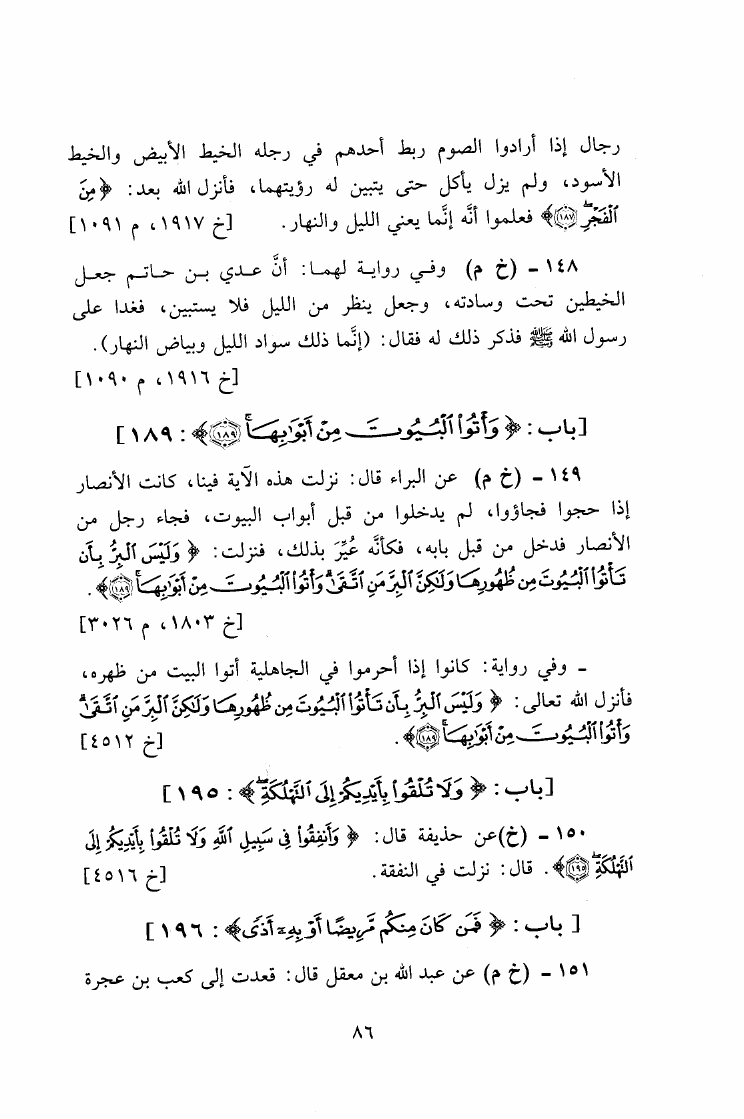 رجال إذا أرادوا الصوم ربط أحدهم في رجله الخيط الأبيض والخيط
الأسود، ولم يزل يأكل حتى يتبين له رؤيتهما، فأنزل الله بعد: ﴿مِنَ
ٱلْفَجْرِۖ ١٨٧﴾ فعلموا أنَّه إنَّما يعني الليل والنهار. [خ ١٩١٧، م ١٠٩١]
١٤٨ - (خ م) وفي رواية لهما: أنَّ عدي بن حاتم جعل
الخيطين تحت وسادته، وجعل ينظر من الليل فلا يستبين، فغدا على
رسول الله ﷺ فذكر ذلك له فقال: (إنَّما ذلك سواد الليل وبياض النهار).
[خ ١٩١٦، م ١٠٩٠]
[باب: ﴿وَأْتُوا۟ ٱلْبُيُوتَ مِنْ أَبْوَٰبِهَاۚ ١٨٩﴾: ١٨٩]
١٤٩ - (خ م) عن البراء قال: نزلت هذه الآية فينا، كانت الأنصار
إذا حجوا فجاؤوا، لم يدخلوا من قبل أبواب البيوت، فجاء رجل من
الأنصار فدخل من قبل بابه، فكأنَّه عُيِّرَ بذلك، فنزلت: ﴿وَلَيْسَ ٱلْبِرُّ بِأَن
تَأْتُوا۟ ٱلْبُيُوتَ مِن ظُهُورِهَا وَلَٰكِنَّ ٱلْبِرَّ مَنِ ٱتَّقَىٰۗ وَأْتُوا۟ ٱلْبُيُوتَ مِنْ أَبْوَٰبِهَاۚ ١٨٩﴾.
[خ ١٨٠٣، م ٣٠٢٦]
- وفي رواية: كانوا إذا أحرموا في الجاهلية أتوا البيت من ظهره،
فأنزل الله تعالى: ﴿وَلَيْسَ ٱلْبِرُّ بِأَن تَأْتُوا۟ ٱلْبُيُوتَ مِن ظُهُورِهَا وَلَٰكِنَّ ٱلْبِرَّ مَنِ ٱتَّقَىٰۗ
وَأْتُوا۟ ٱلْبُيُوتَ مِنْ أَبْوَٰبِهَاۚ ١٨٩﴾. [خ ٤٥١٢]
[باب: ﴿وَلَا تُلْقُوا۟ بِأَيْدِيكُمْ إِلَى ٱلتَّهْلُكَةِۖ﴾: ١٩٥]
١٥٠ - (خ) عن حذيفة قال: ﴿وَأَنفِقُوا۟ فِى سَبِيلِ ٱللَّهِ وَلَا تُلْقُوا۟ بِأَيْدِيكُمْ إِلَى
ٱلتَّهْلُكَةِۖ ١٩٥﴾. قال: نزلت في النفقة. [خ ٤٥١٦]
[باب: ﴿فَمَن كَانَ مِنكُم مَّرِيضًا أَوْ بِهِۦٓ أَذًى﴾: ١٩٦]
١٥١ - (خ م) عن عبد الله بن معقل قال: قعدت إلى كعب بن عجرة
٨٦